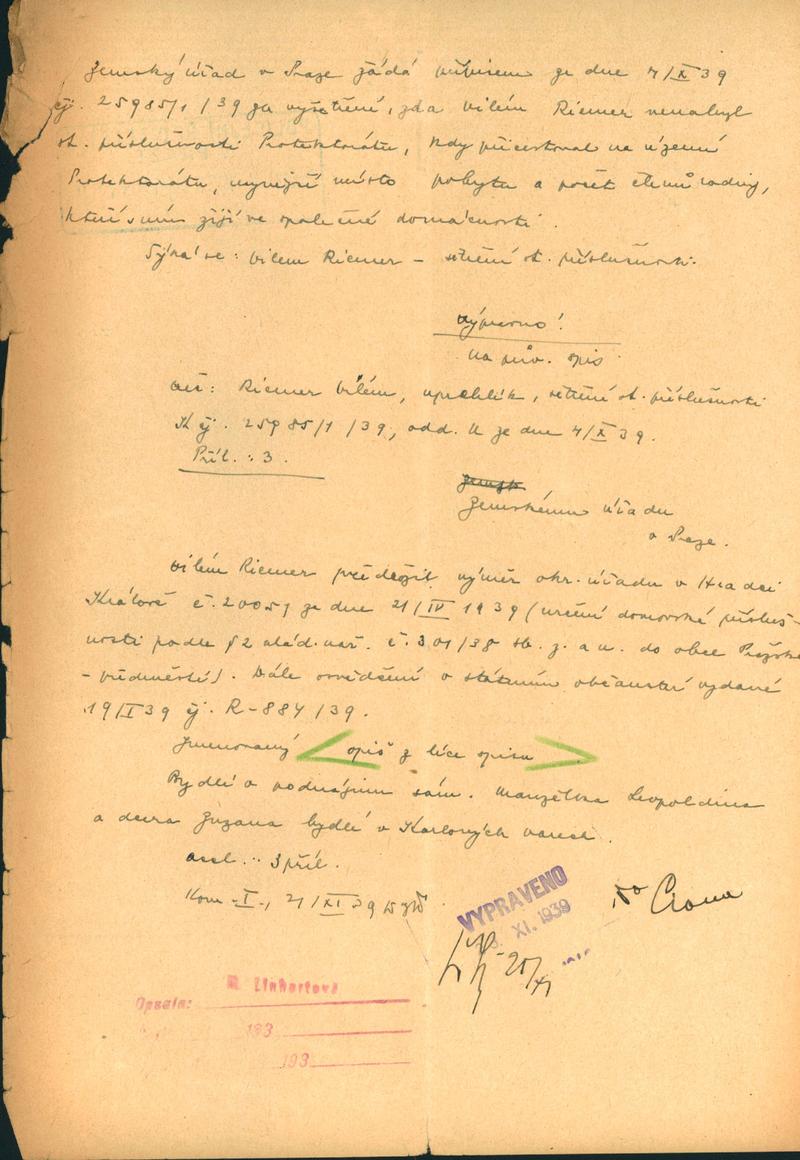 Zemský úřad v Praze žádá přípisem ze dne 4/X 39
čj. 25985/1/39 za vyšetření, zda Vilém Riemer nenabyl
st. příslušnosti Protektorátu, kdy přicestoval na území
Protektorátu, nynější místo pobytu a počet členů rodiny,
kteří s ním žijí ve společné domácnosti.
Týká se: Vilém Riemer – st. příslušnosti.
na pův. spis
Věc: Riemer Vilém, uprchlík, st. příslušnosti
K čj. 25985/1/39, odd. ze dne 4/X 39.
Příl.: 3.
Zemskému úřadu
v Praze.
Vilém Riemer předložil výměr okr. úřadu v Hradci
Králové č. 20051 ze dne 21/IV 1939 (určení domovské přísluš-
nosti podle §2 vlád. nař. č. 301/38 Sb. z. a n. do obce Pražské
- předměstí). Dále osvědčení o státním občanství vydané
19/I 39 čj. R-884/39.
Jmenovaný < opiš z líce spisu >
Bydlí v podnájmu sám. Manželka Leopoldina
a dcera Zuzana bydlí v Karlových Varech.
3 příl.
Kom-I-, 21/XI 39
VYPRAVENO
XI. 1939
Opsala: Linhartová
193
193